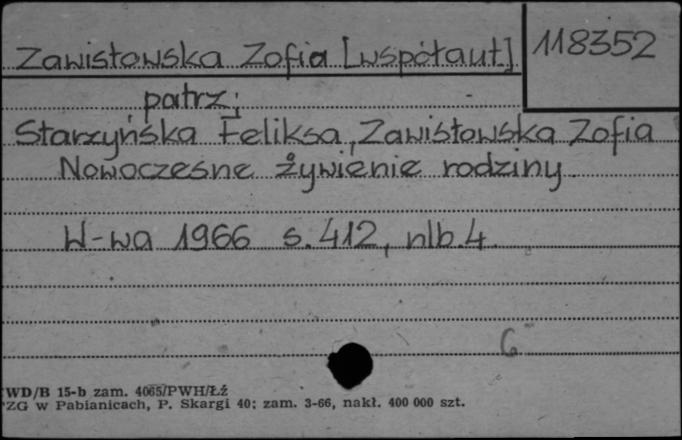 Zawistowska Zofia [współaut]
118352
patrz;
Starzyńska Feliksa, Zawistowska Zofia
Nowoczesne żywienie rodziny
W-wa 1966 s. 412, nlb. 4
6
WD/B 15-b zam. 4065/PWH/Łź
PZG w Pabianicach, P. Skargi 40; zam. 3-66, nakł. 400 000 szt.